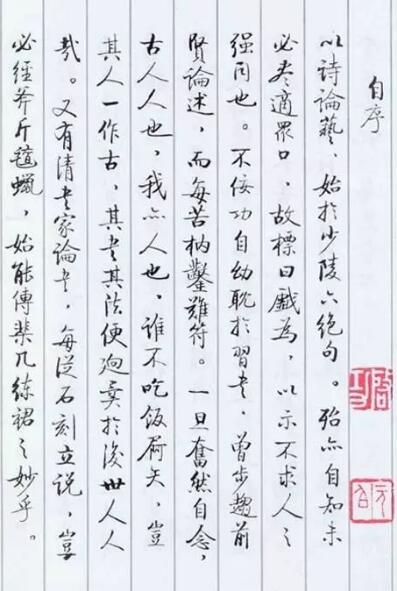 自序
以詩論藝，始於少陵六絕句。殆亦自知未
必盡適眾口，故標曰戲為，以示不求人之
强同也。不佞功自幼耽於習書，曾步趨前
賢論述，而每苦枘鑿難符。一旦奮然自念，
古人人也，我亦人也，誰不吃飯屙矢，豈
其人一作古，其書其法便迥異於後世人人
哉。又有清書家論書，每從石刻立說，豈
必經斧斤氊蠟，始能傳棐几練裙之妙乎。
啓功
元白